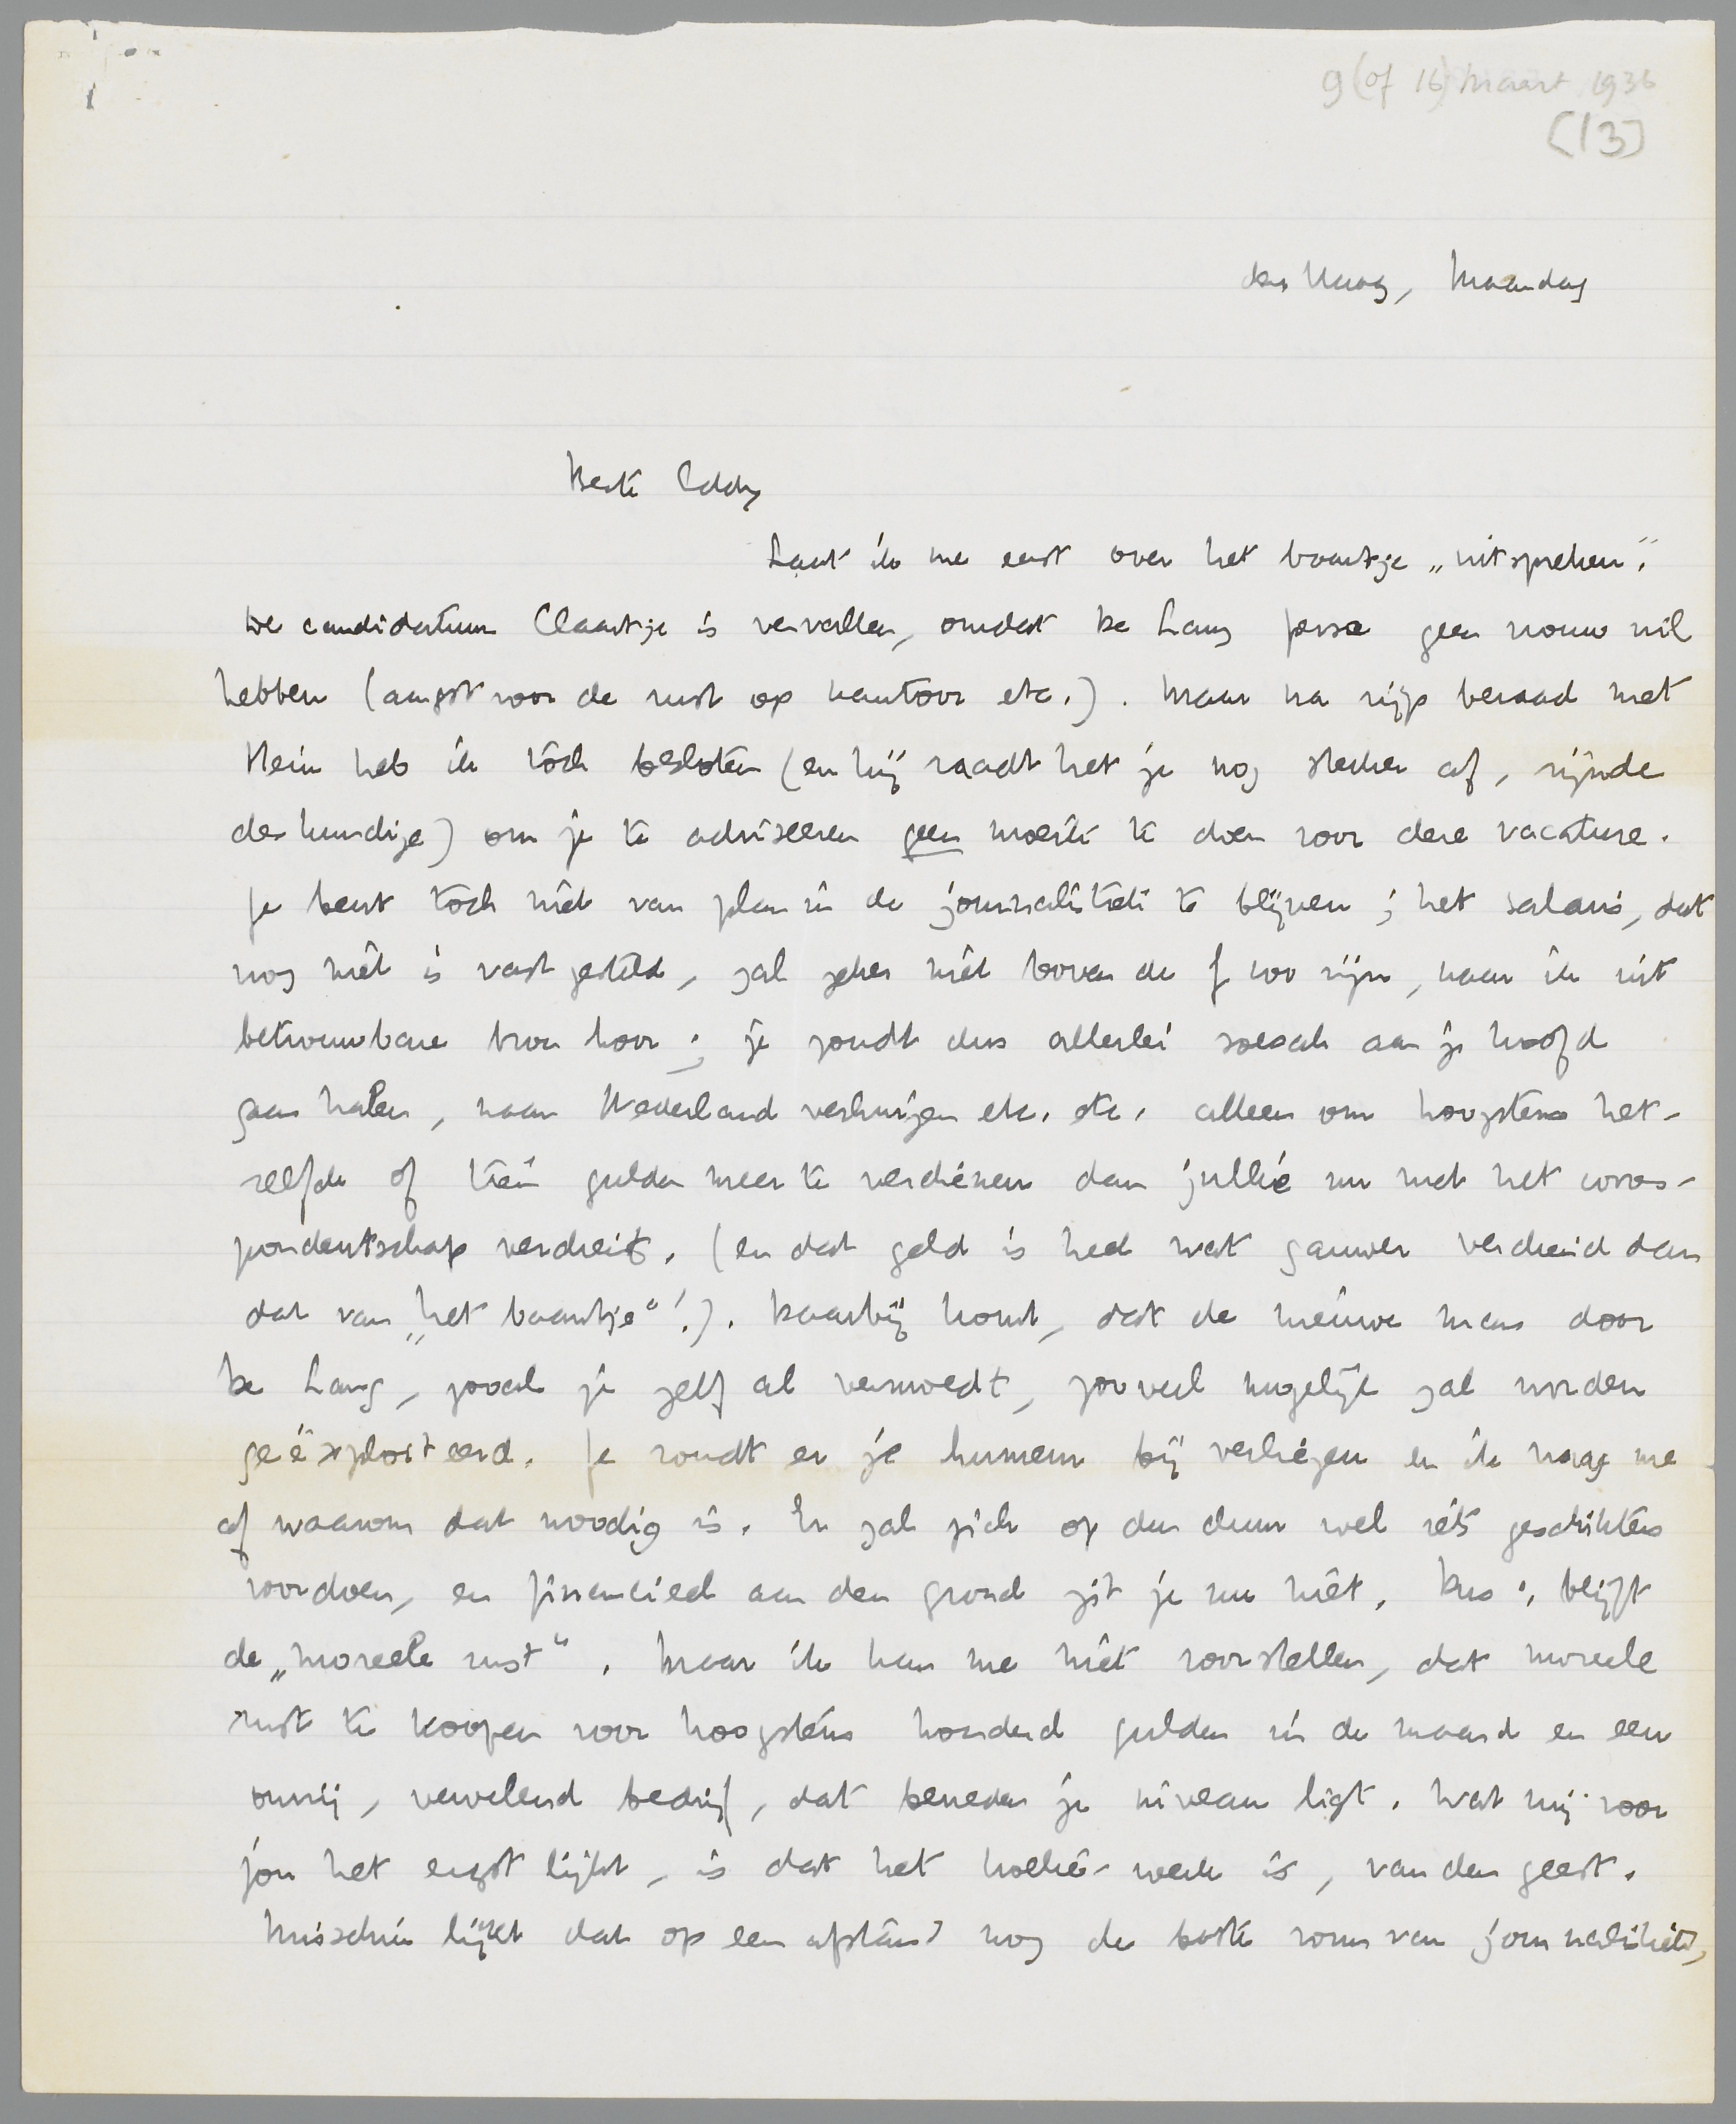 9 (of 16) Maart 1936
[13]
den Haag, Maandag
Beste Eddy
Laat ik me eerst over het baantje „uitspreken".
De candidatuur Claartje is vervallen, omdat De Lang perse geen vrouw wil
hebben (angst voor de rust op kantoor etc.). Maar na rijp beraad met
Hein heb ik tóch besloten (en hij raadt het je nog sterker af, zijnde
deskundige) om je te adviseeren geen moeite te doen voor deze vacature.
Je bent toch niet van plan in de journalistiek te blijven; het salaris, dat
nog niet is vastgesteld, zal zeker niet boven de ƒ 100 zijn, naar ik uit
betrouwbare bron hoor; je zoudt dus allerlei soesah aan je hoofd
gaan halen, naar Nederland verhuizen etc. etc. alleen om hoogstens het-
zelfde of tien gulden meer te verdienen dan jullie nu met het corres-
pondentschap verdient. (en dat geld is heel wat gauwer verdiend dan
dat van „het baantje"!). Daarbij komt, dat de nieuwe man door
De Lang, zooals je zelf al vermoedt, zooveel mogelijk zal worden
geëxploiteerd. Je zoudt er je humeur bij verliezen en ik vraag me
af waarom dat noodig is. Er zal zich op den duur wel iets geschikters
voordoen, en financieel aan den grond zit je nu niet. Dus: blijft
de „moreele rust". Maar ik kan me niet voorstellen, dat moreele
rust te koopen voor hoogstens honderd gulden in de maand en een
onvrij, vervelend bedrijf, dat beneden je niveau ligt. Wat mij voor
jou het ergst lijkt, is dat het koelie-werk is, van den geest.
Misschien lijkt dat op een afstand nog de beste vorm van journalistiek,